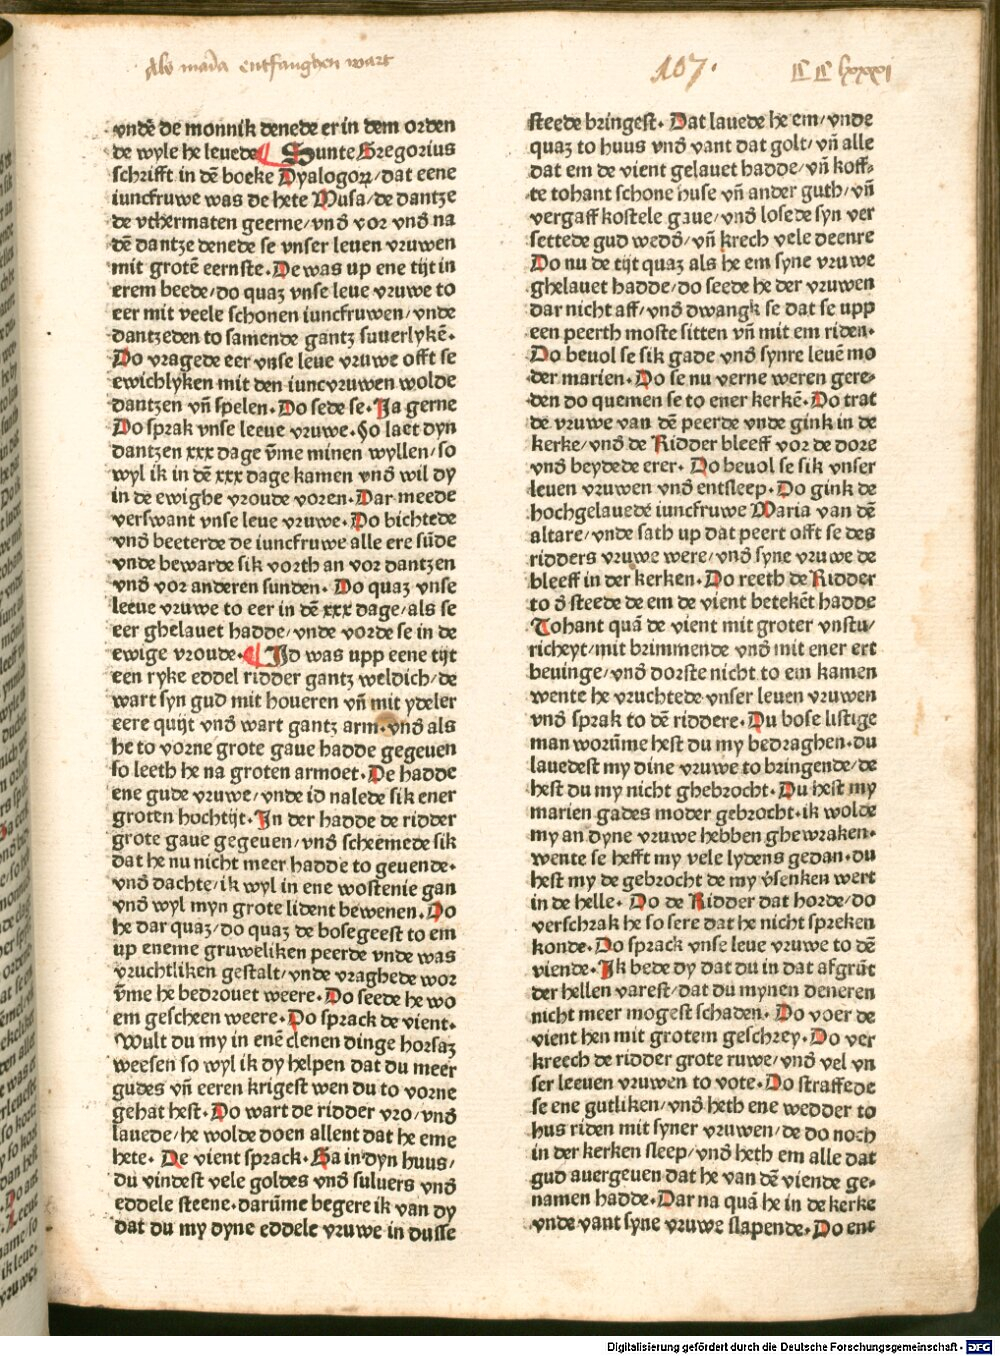 Als maria entfanghen wart 107. CC lxxxi
vndē de monnik denede er in dem orden
de wyle he leuede Sunte Gregorius
schrifft in dē boeke Dyalogoꝝ/dat eene
iuncfruwe was de hete Musa/de dantze
de vthermaten geerne/vnd vor vnd na
dē dantze denede se vnser leuen vruwen
mit grotē eernste. De was up ene tijt in
erem beede/do quaz vnse leue vruwe to
eer mit veele schonen iuncfruwen/vnde
dantzeden to samende gantz suuerlykē.
Do vragede eer vnse leue vruwe offt se
ewichlyken mit den iuncvruwen wolde
dantzen vn̄ spelen. Do sede se. Ja gerne
Do sprak vnse leeue vruwe. So laet dyn
dantzen xxx dage v̄me minen wyllen/so
wyl ik in dē xxx dage kamen vnd wil dy
in de ewighe vroude voren. Dar meede
verswant vnse leue vruwe. Do bichtede
vnd beeterde de iuncfruwe alle ere sūde
vnde bewarde sik vorth an vor dantzen
vnd vor anderen sunden. Do quaz vnse
leeue vruwe to eer in dē xxx dage/als se
eer ghelauet hadde/vnde vorde se in de
ewige vroude. Id was upp eene tijt
een ryke eddel ridder gantz weldich/de
wart syn gud mit houeren vn̄ mit ydeler
eere quijt vnd wart gantz arm. vnd als
he to vorne grote gaue hadde gegeuen
so leeth he na groten armoet. De hadde
ene gude vruwe/vnde id nalede sik ener
groten hochtijt. In der hadde de ridder
grote gaue gegeuen/vnd scheemede sik
dat he nu nicht meer hadde to geuende.
vnd dachte/ik wyl in ene wostenie gan
vnd wyl myn grote lident bewenen. Do
he dar quaz/do quaz de bose geest to em
up eneme gruweliken peerde vnde was
vruchtliken gestalt/vnde vraghede wor
v̄me he bedrouet weere. Do seede he wo
em gescheen weere. Do sprack de vient.
Wult du my in enē clenen dinge horsaz
weesen so wyl ik dy helpen dat du meer
gudes vn̄ eeren krigest wen du to vorne
gehat hest. Do wart de ridder vro/vnd
lauede/he wolde doen allent dat he eme
hete. De vient sprack. Ga in dyn huus/
du vindest vele goldes vnd suluers vnd
eddele steene. darūme begere ik van dy
dat du my dyne eddele vruwe in dusse
steede bringest. Dat lauede he em/vnde
quaz to huus vnd vant dat golt/vn̄ alle
dat em de vient gelauet hadde/vn̄ koff-
te tohant schone huse vn̄ ander guth/vn̄
vergaff kostele gaue/vnd losede syn ver
settede gud wedd/vn̄ krech vele deenre
Do nu de tijt quaz als he em syne vruwe
ghelauet hadde/do seede he der vruwen
dar nicht aff/vnd dwangk se dat se upp
een peerth moste sitten vn̄ mit em riden.
Do beuol se sik gade vnd synre leuē mo
der marien. Do se nu verne weren gere-
den do quemen se to ener kerkē. Do trat
de vruwe van dē peerde vnde gink in de
kerke/vnd de Ridder bleeff vor de dore
vnd beydede erer. Do beuol se sik vnser
leuen vruwen vnd entsleep. Do gink de
hochgelauedē iuncfruwe Maria van dē
altare/vnde sath up dat peert offt se des
ridders vruwe were/vnd syne vruwe de
bleeff in der kerken. Do reeth de Ridder
to d steede de em de vient betekēt hadde
Tohant quā de vient mit groter vnstu/
richeyt/mit brimmende vnd mit ener ert
beuinge/vnd dorste nicht to em kamen
wente he vruchtede vnser leuen vruwen
vnd sprak to dē riddere. Du bose listige
man worūme hest du my bedraghen. du
lauedest my dine vruwe to bringende/de
hest du my nicht ghebrocht. Du hest my
marien gades moder gebrocht. ik wolde
my an dyne vruwe hebben ghewraken.
wente se hefft my vele lydens gedan. du
hest my de gebrocht de my v̄senken wert
in de helle. Do de Ridder dat horde/do
verschrak he so sere dat he nicht spreken
konde. Do sprack vnse leue vruwe to dē
viende. Ik bede dy dat du in dat afgrūt
der hellen varest/dat du mynen deneren
nicht meer mogest schaden. Do voer de
vient hen mit grotem geschrey. Do ver
kreech de ridder grote ruwe/vnd vel vn
ser leeuen vruwen to vote. Do straffede
se ene gutliken/vnd heth ene wedder to
hus riden mit syner vruwen/de do noch
in der kerken sleep/vnd heth em alle dat
gud auergeuen dat he van dē viende ge-
namen hadde. Dar na quā he in de kerke
vnde vant syne vruwe slapende. Do ent
Digitalisierung gefördert durch die Deutsche Forschungsgemeinschaft - DFG